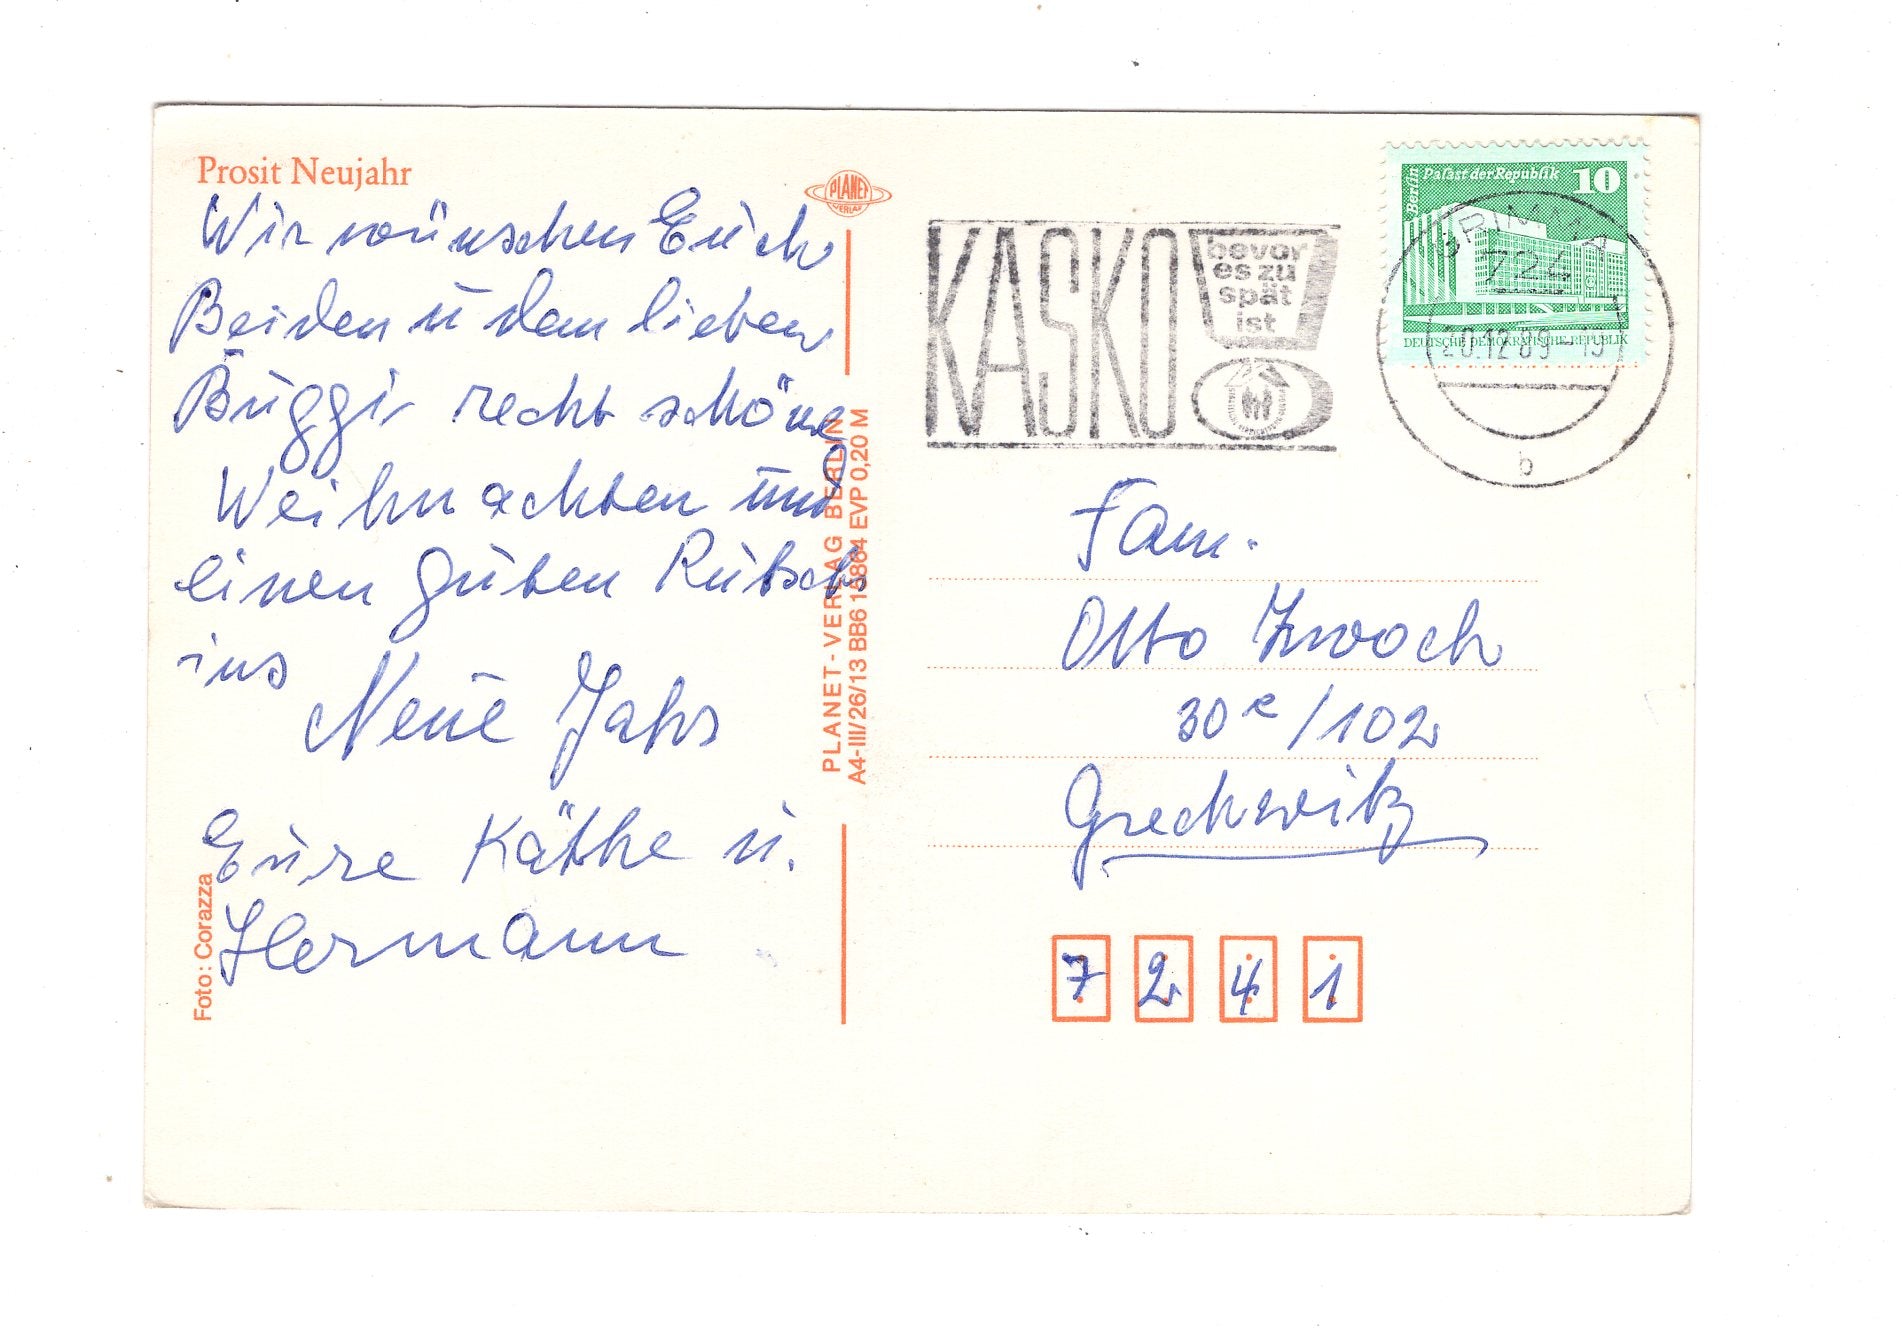 Prosit Neujahr
Wir wünschen Euch
Beiden u dem lieben
Buggi recht schöne
Weihnachten und
einen guten Rutsch
ins
Neue Jahr
Eure Käthe u.
Hermann
Foto: Corazza
PLANET
VERLAG
PLANET-VERLAG BERLIN
A4-III/26/13 BB6 18864 EVP 0,20 M
KASKO
bevor
es zu
spät
ist
Berlin
Palast der Republik 10
DEUTSCHE DEMOKRATISCHE REPUBLIK
GRIMMA
724
20.12.89-15
b
Fam.
Otto Zwoch
30e/102
Grechwitz
7241